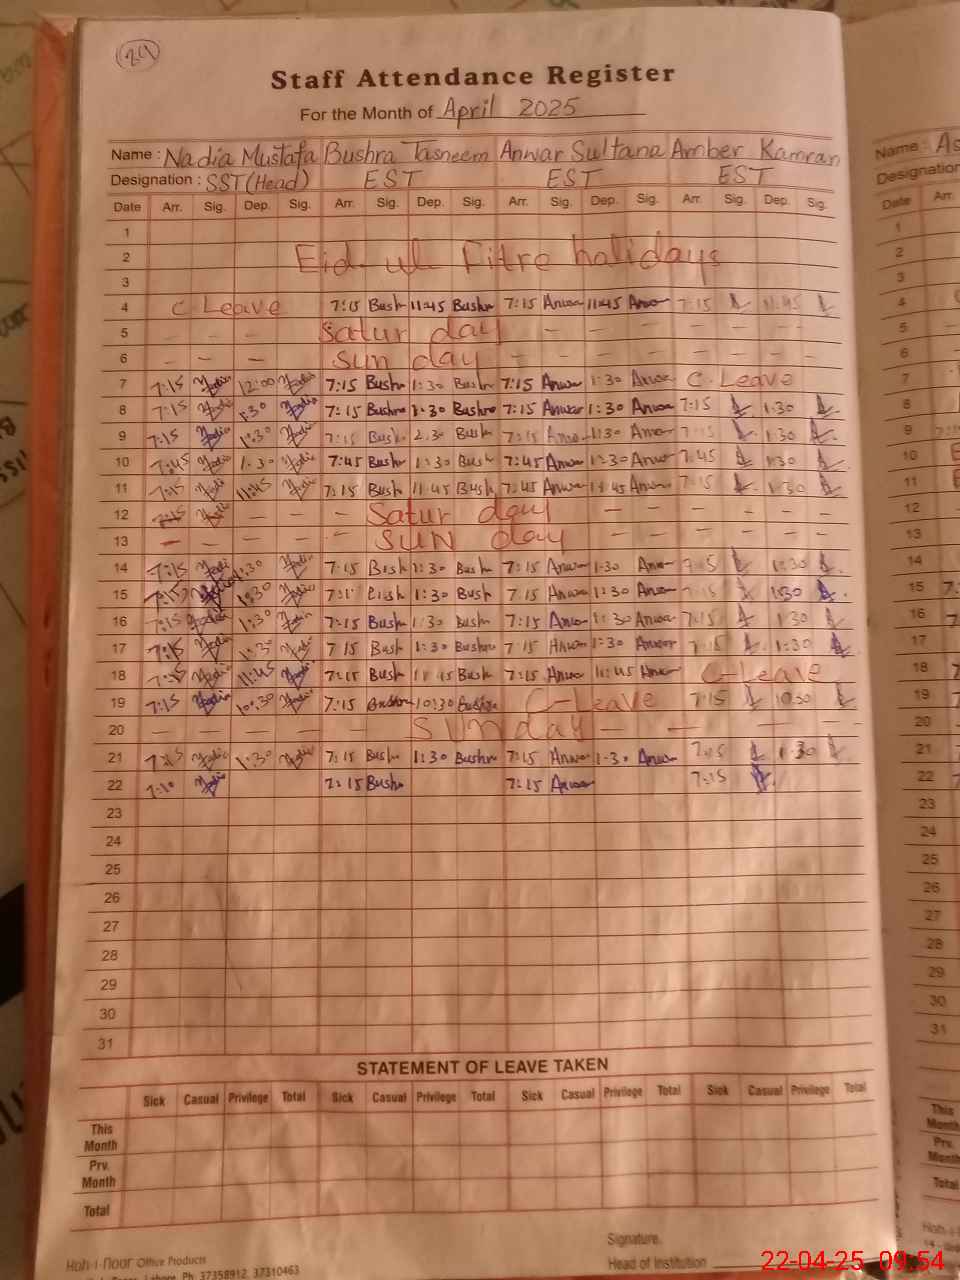 24
Staff Attendance Register
For the Month of April 2025
Name : Nadia Mustafa Bushra Tasneem Anwar Sultana Amber Kamran
Designation : SST (Head) EST EST EST
Date Arr. Sig. Dep. Sig. Arr. Sig. Dep. Sig. Arr. Sig. Dep. Sig. Arr. Sig. Dep. Sig.
1
2 Eid-ul Fitre halidays
3
4 C Leave 7:15 Bush 11:45 Bushra 7:15 Anwa 11:45 Anwa 7:15 11:45
5 — — — Satur day — — — — — — —
6 — — — sun day — — — — — — —
7 7:15 Nadia 12:00 Nadia 7:15 Bushr 1:30 Bush 7:15 Anwa 1:30 Anwa C.Leave
8 7:15 Nadia 1:30 Nadia 7:15 Bushra 1:30 Bushra 7:15 Anwar 1:30 Anwar 7:15 1:30
9 7:15 Nadia 1:30 Nadia 7:15 Bush 2.30 Bush 7:15 Anwa 1:30 Anwar 7:15 1:30
10 7:45 Nadia 1.30 Nadia 7:45 Bush 1:30 Bush 7:45 Anwa 1:30 Anwar 7.45 1:30
11 7:15 Nadia 11:45 Nadia 7:15 Bush 11.45 Bush 7:45 Anwa 11.45 Anwar 7:15 1:30
12 7:15 Nadia — — — Satur day — — — — — —
13 — — — — — sun day — — — — — —
14 7:15 Nadia 1:30 Nadia 7:15 Bush 1:30 Bush 7:15 Anwa 1:30 Anwa 1:30
15 7:15 Nadia 1:30 Nadia Bush 1:30 Bush 7:15 Anwar 1:30 Anwar 7:15 1:30
16 7:15 Nadia 1:30 Nadia 7:15 Bush 1:30 Bush 7:15 Anwa 1:30 Anwar 7:15 1:30
17 7:15 Nadia 1:30 Nadia 7:15 Bush 1:30 Bushra 7:15 Anwar 1:30 Anwar 7:15 1:30
18 7:15 Nadia 11:45 Nadia 7:15 Bush 11:45 Bush 7:15 Anwar 11:45 Anwar C-Leave
19 7:15 Nadia 10:30 Nadia 7:15 Bushra 10:30 Bushra C-Leave 7:15 10:30
20 — — — — — — Sunday — — — —
21 7:15 Nadia 1:30 Nadia 7:15 Bush 1:30 Bushra 7:15 Anwar 1:30 Anwar 7:15 1:30
22 7:10 Nadia 7:15 Bushr 7:15 Anwar 7:15
23
24
25
26
27
28
29
30
31
STATEMENT OF LEAVE TAKEN
Sick Casual Privilege Total Sick Casual Privilege Total Sick Casual Privilege Total Sick Casual Privilege Total
This Month
Prv. Month
Total
Signature.
Head of Institution
Koh-i-noor Office Products
Lahore. Ph: 37358912 37310463
Name : As
Designation
Date Arr.
1
2
3
4
5
6
7
8
9
10
11
12
13
14
15
16
17
18
19
20
21
22
23
24
25
26
27
28
29
30
31
This Month
Prv. Month
Total
22-04-25 09:54